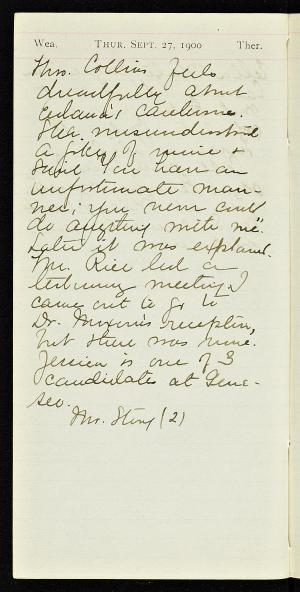 Wea. THUR. SEPT. 27, 1900 Ther.
Mrs. Collins feels
dreadfully about
She misunderstood
a joke of mine &
said "You have an
unfortunate man-
ner; you never could
do anything with me".
Later it was explained.
Mr. Rice led a
testimony meeting. I
came out to go to
Dr. reception,
but there was none.
Jessica is one of 3
candidates at Gene-
seo.
Mr. Story (2)